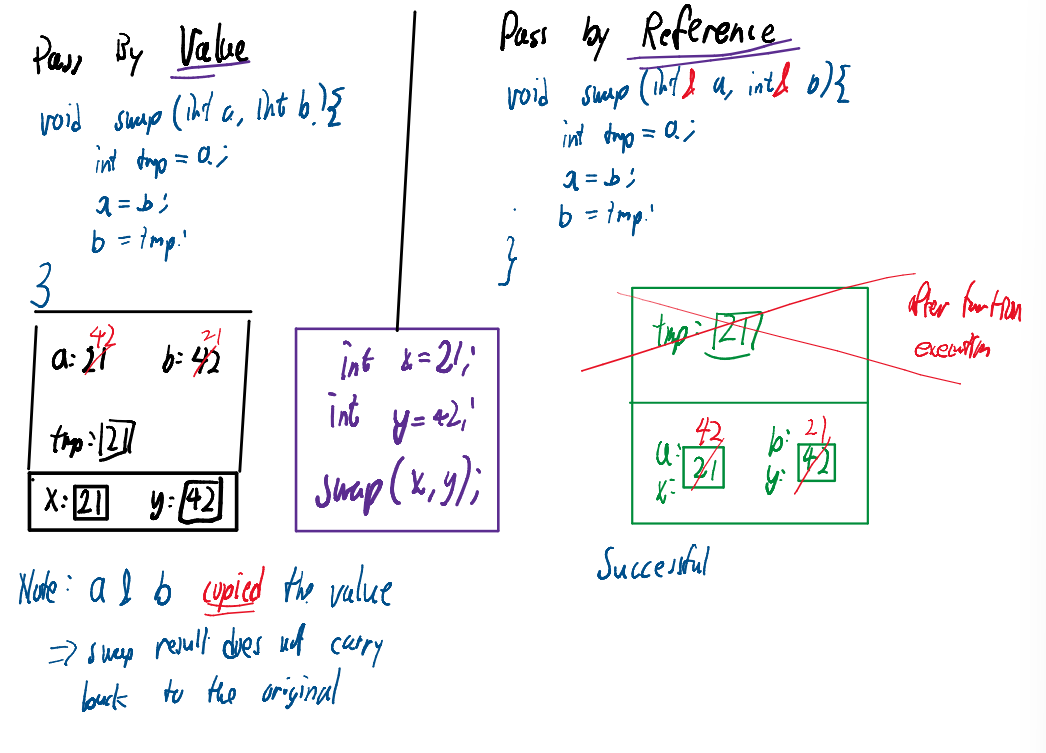 Pass By Value
void swap (int a, int b){
int tmp = a;
a = b;
b = tmp;
}
42
21
a: 21
b: 42
tmp: 21
x: 21
y: 42
int x = 21;
int y = 42;
swap(x, y);
Note: a & b copied the value
⇒ swap result does not carry
back to the original
Pass by Reference
void swap (int& a, int& b){
int tmp = a;
a = b;
b = tmp;
}
tmp: 21
after function
execution
42
21
a:
b:
21
42
x:
y:
Successful